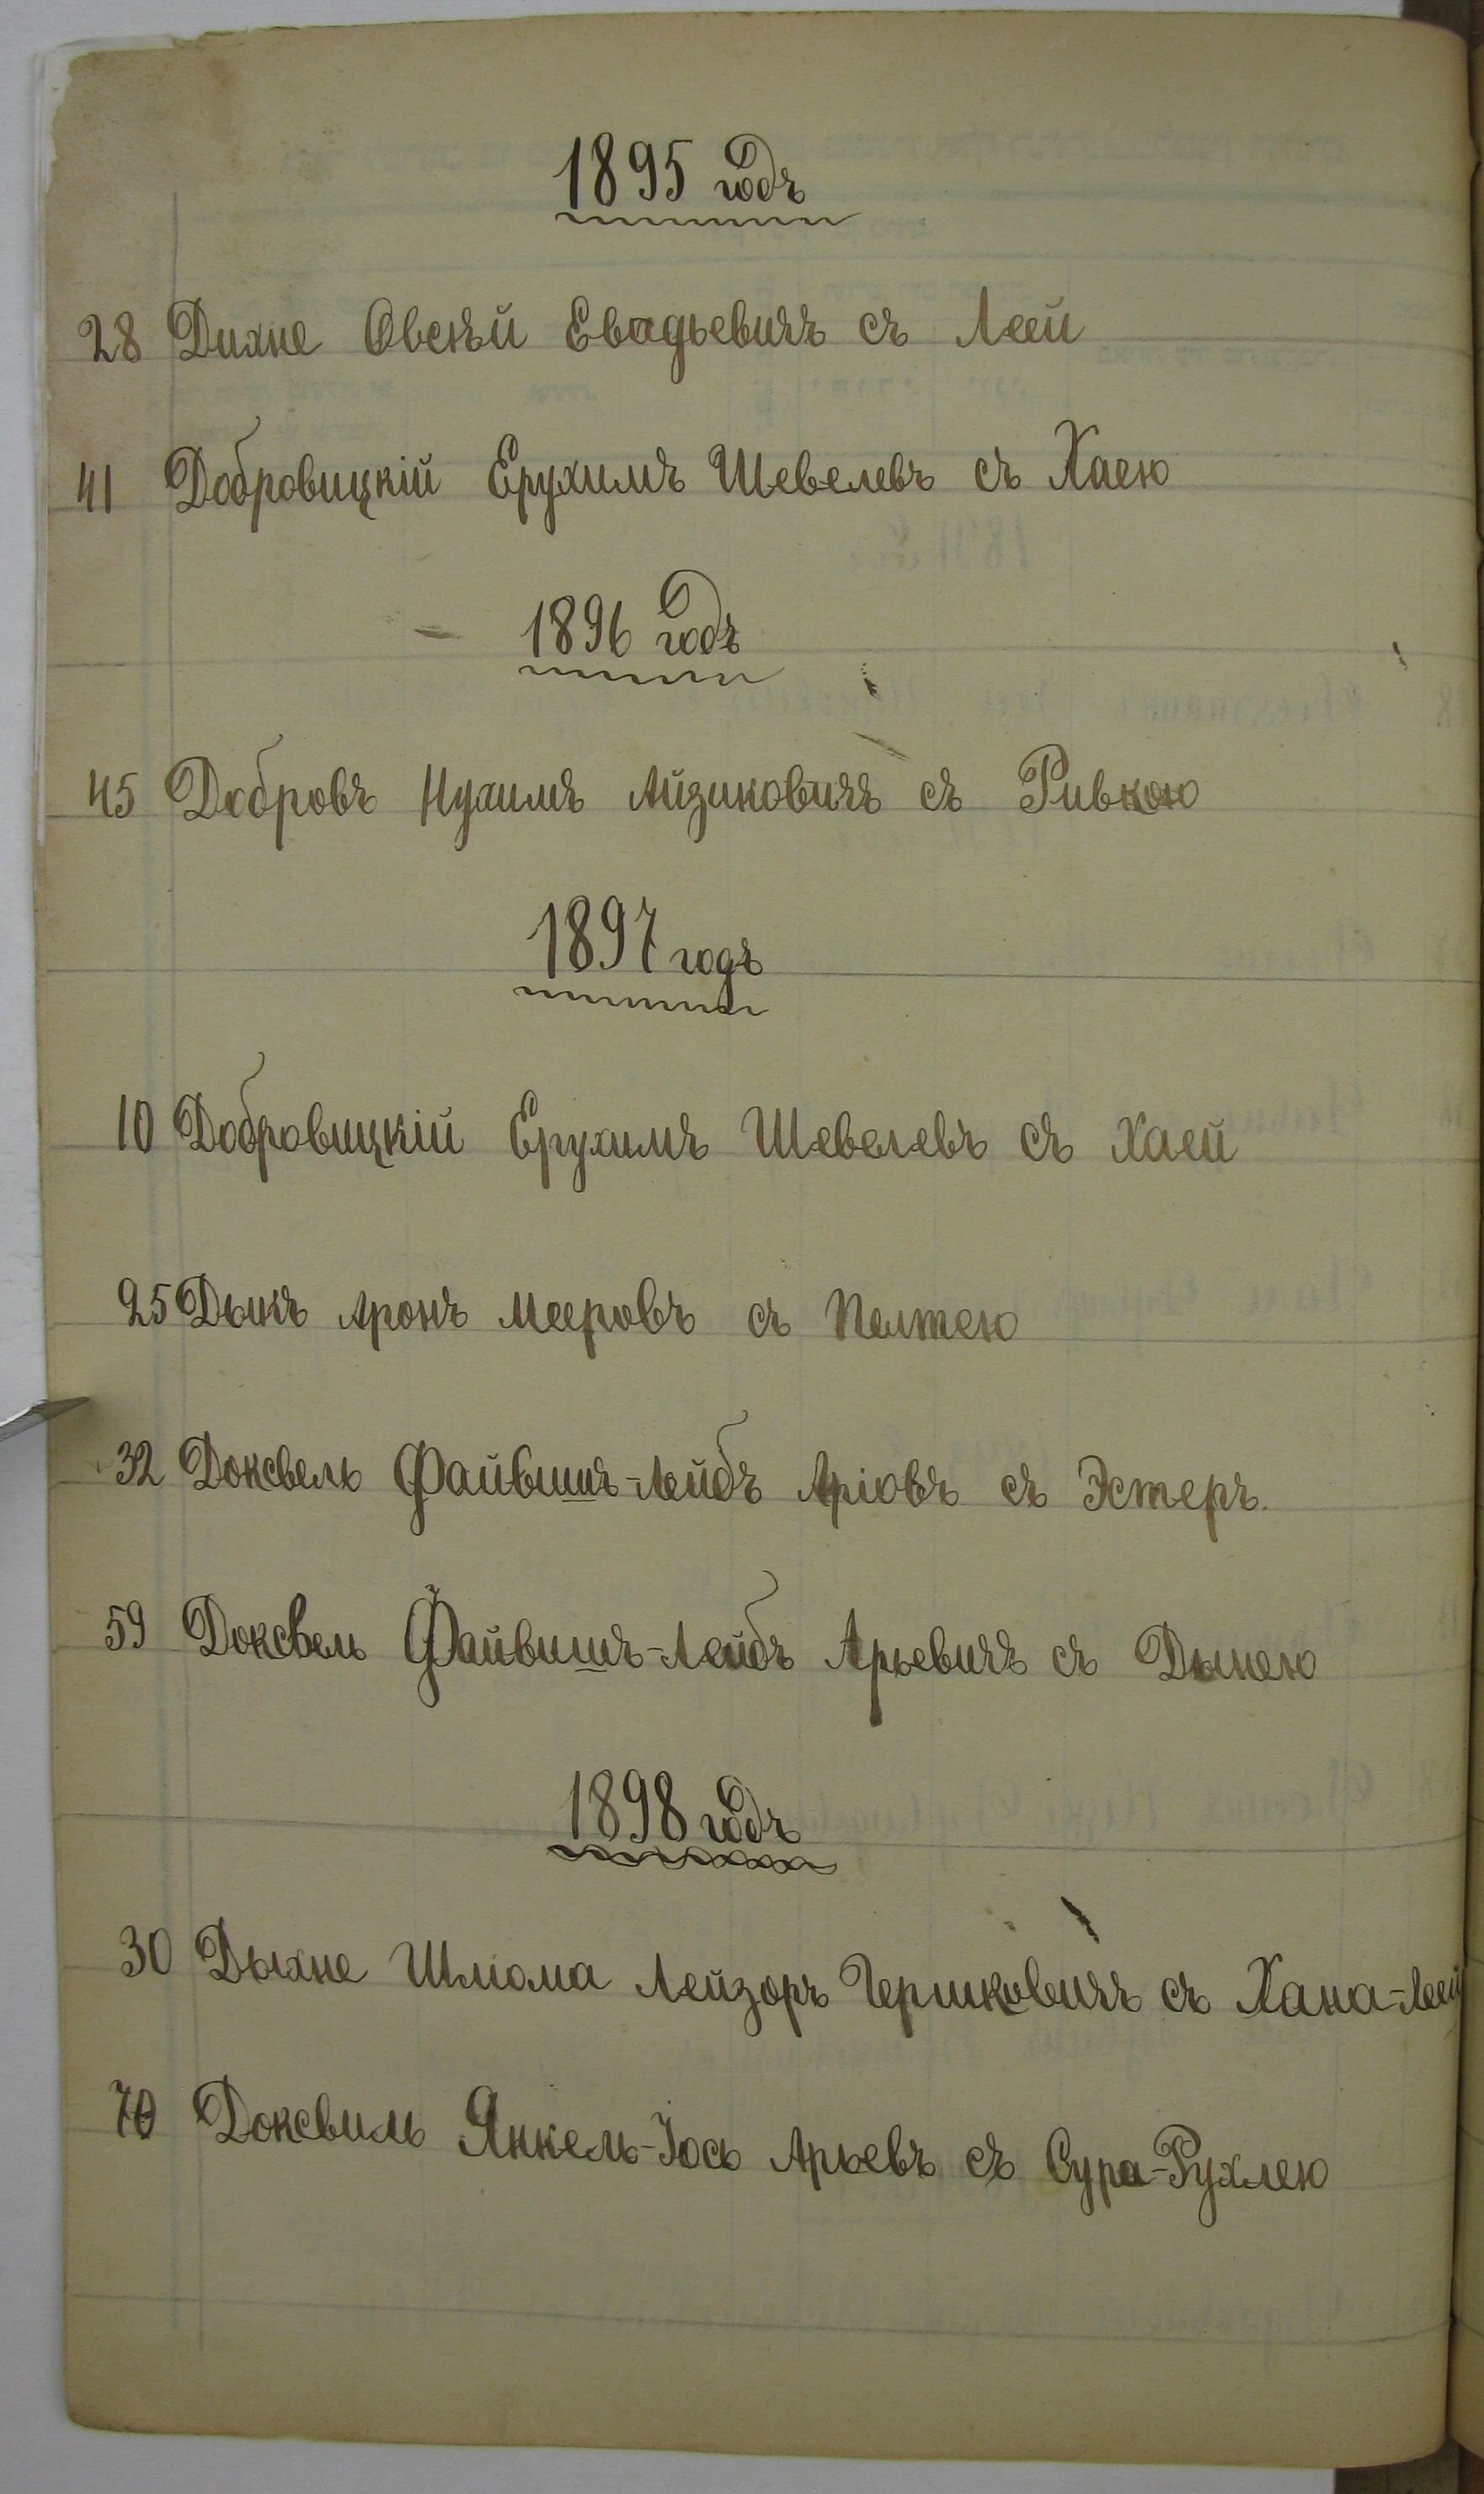 1895 годъ
28 Дихне Овсѣй Евадьевичъ съ Леей
41 Добровицкій Ерухимъ Шевелевъ съ Хаею
1896 годъ
45 Добровъ Нухимъ Айзиковичъ съ Ривкою
1897 годъ
10 Добровицкій Ерухимъ Шевелевъ съ Хаей
25 Дыкъ Аронъ Мееровъ съ
32 Доксвель Файвишъ-Лейбъ Аріовъ съ Эстеръ.
59 Доксвель Файвишъ-Лейбъ Арьевичъ съ Дынею
1898 годъ
30 Дыхне Шлиома Лейзоръ Гершковичъ съ Хана-Леей
70 Доксвиль Янкель-Іось Арьевъ съ Сура-Рухлею